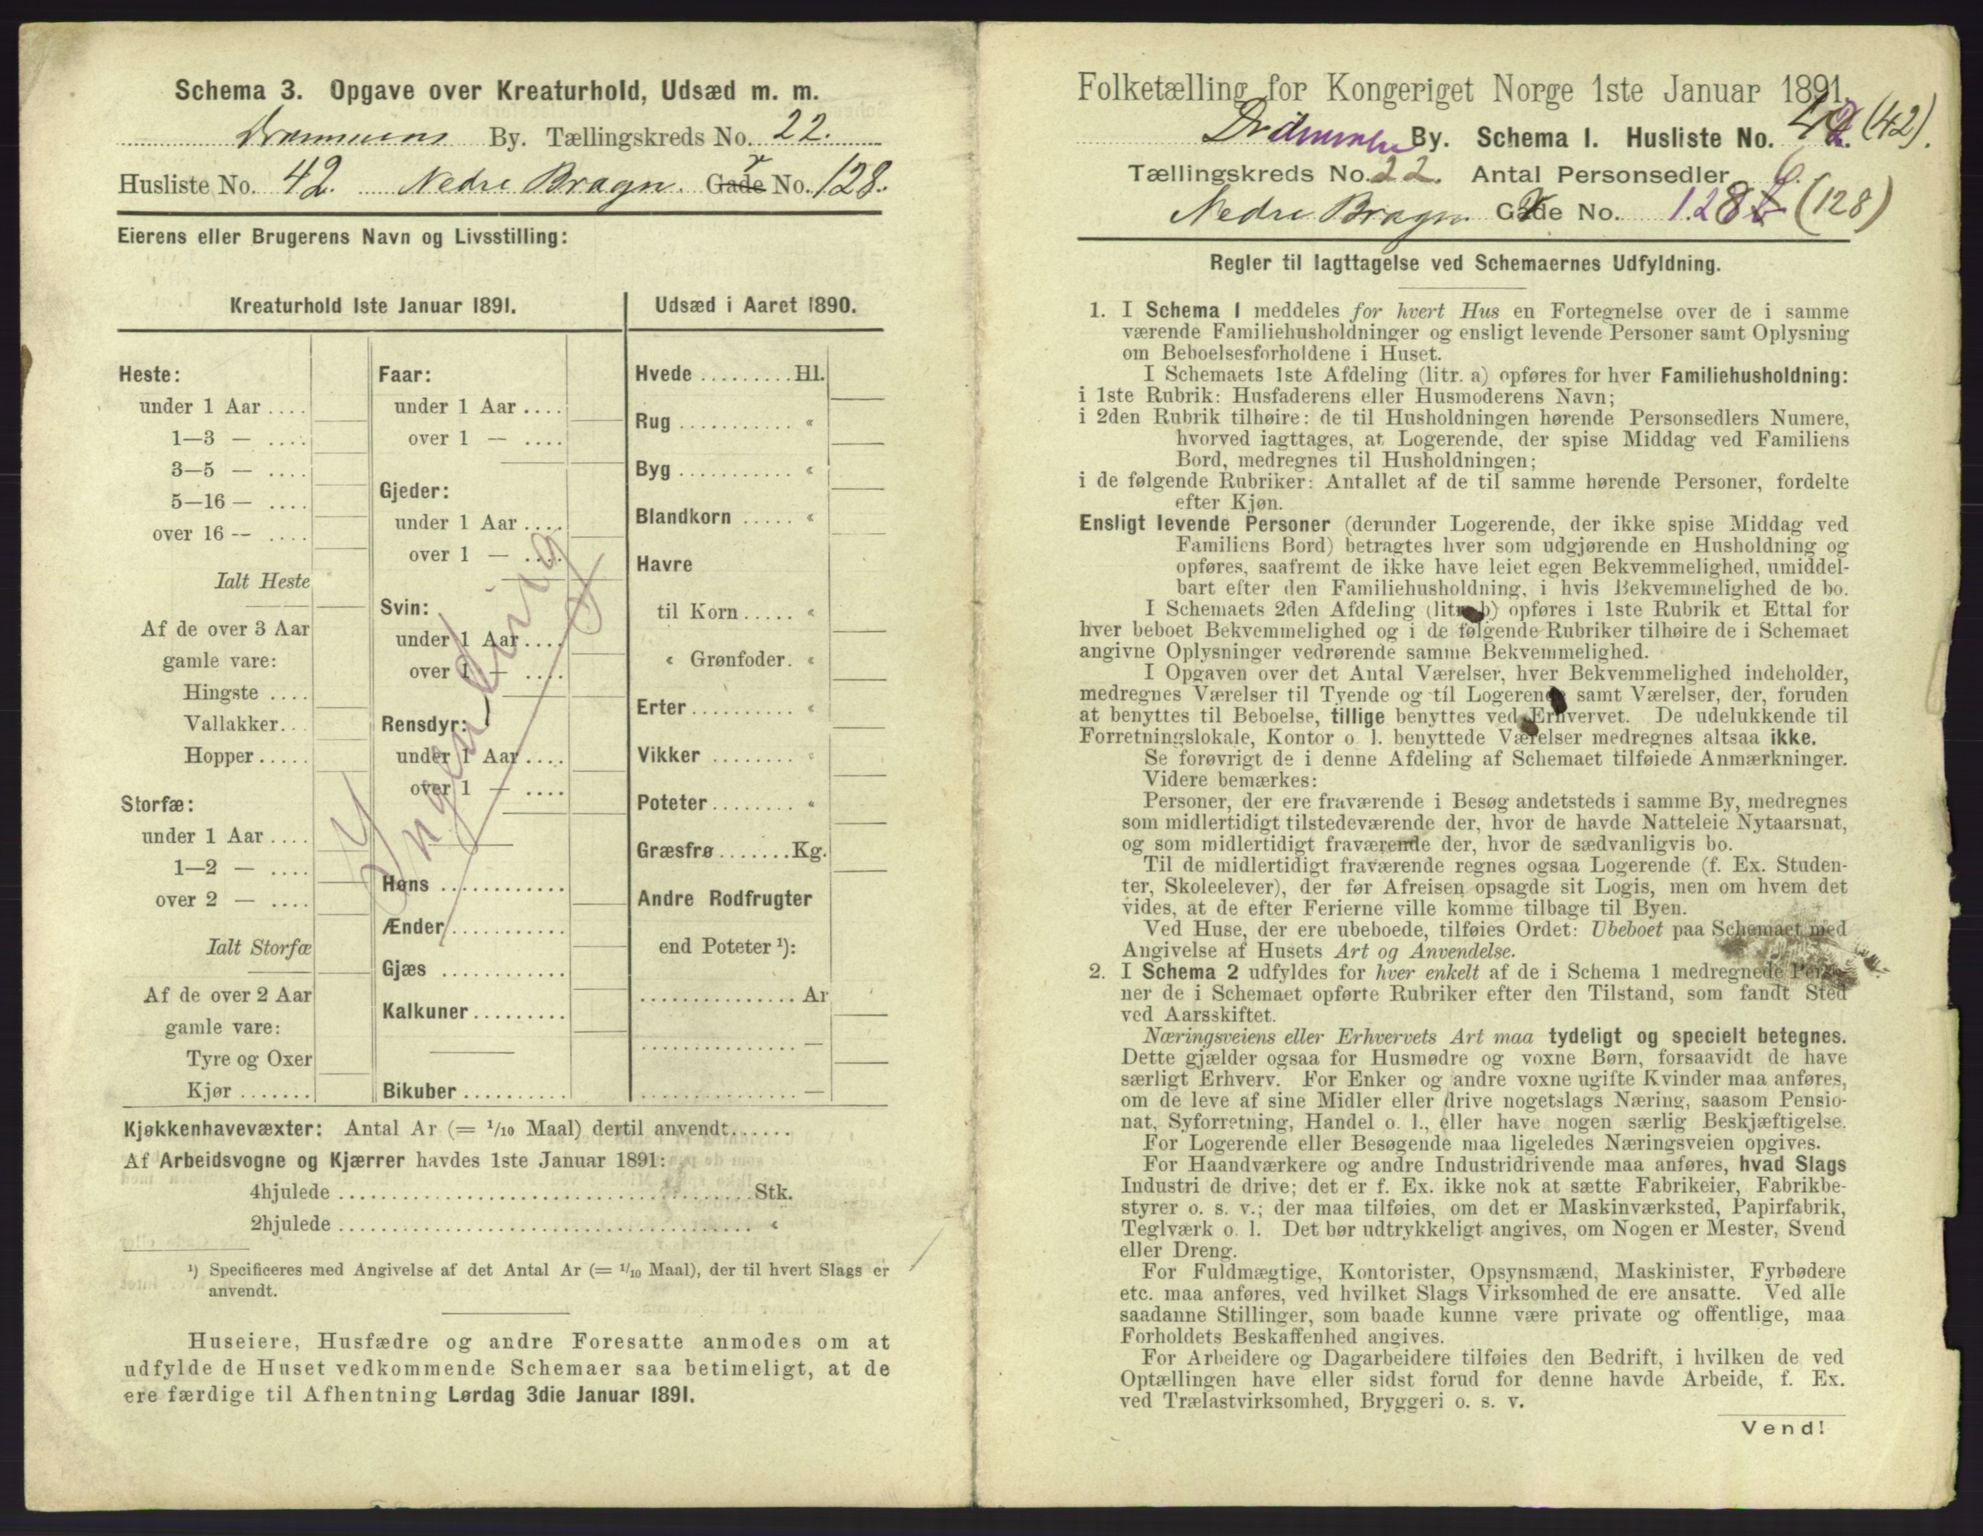 Schema 3. Opgave over Kreaturhold, Udsæd m. m.
Drammens By. Tællingskreds No. 22.
Husliste No. 42. Nedre Bragn. Gade No. 128.
Eierens eller Brugerens Navn og Livsstilling:
Kreaturhold 1ste Januar 1891.
Heste:
under 1 Aar ....
1—3 — ....
3—5 — ....
5—16 — ....
over 16 — ....
Ialt Heste
Af de over 3 Aar
gamle vare:
Hingste ....
Vallakker...
Hopper .....
Storfæ:
under 1 Aar ....
1—2 — ....
over 2 — ....
Ialt Storfæ
Af de over 2 Aar
gamle vare:
Tyre og Oxer
Kjør .......
Faar:
under 1 Aar ....
over 1 — ....
Gjeder:
under 1 Aar ....
over 1 — ....
Svin:
under 1 Aar ....
over 1 — ....
Rensdyr:
under 1 Aar ....
over 1 — ....
Høns ............
Ænder ...........
Gjæs ............
Kalkuner .........
Bikuber ..........
Ingenting
Udsæd i Aaret 1890.
Hvede ......... Hl.
Rug ........... «
Byg ........... «
Blandkorn ..... «
Havre
til Korn ..... «
« Grønfoder. «
Erter .......... «
Vikker ........ «
Poteter ........ «
Græsfrø ....... Kg.
Andre Rodfrugter
end Poteter ¹):
............... Ar
............... —
............... —
Kjøkkenhavevæxter: Antal Ar (= 1/10 Maal) dertil anvendt......
Af Arbeidsvogne og Kjærrer havdes 1ste Januar 1891:
4hjulede ........................................ Stk.
2hjulede ........................................ «
¹) Specificeres med Angivelse af det Antal Ar (= 1/10 Maal), der til hvert Slags er
anvendt.
Huseiere, Husfædre og andre Foresatte anmodes om at
udfylde de Huset vedkommende Schemaer saa betimeligt, at de
ere færdige til Afhentning Lørdag 3die Januar 1891.
Folketælling for Kongeriget Norge 1ste Januar 1891.
Drammens By. Schema 1. Husliste No. 42. (42).
Tællingskreds No. 22. Antal Personsedler 6.
Nedre Bragn Gade No. 128 (128)
Regler til Iagttagelse ved Schemaernes Udfyldning.
1. I Schema 1 meddeles for hvert Hus en Fortegnelse over de i samme
værende Familiehusholdninger og ensligt levende Personer samt Oplysning
om Beboelsesforholdene i Huset.
I Schemaets 1ste Afdeling (litr. a) opføres for hver Familiehusholdning:
i 1ste Rubrik: Husfaderens eller Husmoderens Navn;
i 2den Rubrik tilhøire: de til Husholdningen hørende Personsedlers Numere,
hvorved iagttages, at Logerende, der spise Middag ved Familiens
Bord, medregnes til Husholdningen;
i de følgende Rubriker: Antallet af de til samme hørende Personer, fordelte
efter Kjøn.
Ensligt levende Personer (derunder Logerende, der ikke spise Middag ved
Familiens Bord) betragtes hver som udgjørende en Husholdning og
opføres, saafremt de ikke have leiet egen Bekvemmelighed, umiddel-
bart efter den Familiehusholdning, i hvis Bekvemmelighed de bo.
I Schemaets 2den Afdeling (litr. b) opføres i 1ste Rubrik et Ettal for
hver beboet Bekvemmelighed og i de følgende Rubriker tilhøire de i Schemaet
angivne Oplysninger vedrørende samme Bekvemmelighed.
I Opgaven over det Antal Værelser, hver Bekvemmelighed indeholder,
medregnes Værelser til Tyende og til Logerende samt Værelser, der, foruden
at benyttes til Beboelse, tillige benyttes ved Erhvervet. De udelukkende til
Forretningslokale, Kontor o. l. benyttede Værelser medregnes altsaa ikke.
Se forøvrigt de i denne Afdeling af Schemaet tilføiede Anmærkninger.
Videre bemærkes:
Personer, der ere fraværende i Besøg andetsteds i samme By, medregnes
som midlertidigt tilstedeværende der, hvor de havde Natteleie Nytaarsnat,
og som midlertidigt fraværende der, hvor de sædvanligvis bo.
Til de midlertidigt fraværende regnes ogsaa Logerende (f. Ex. Studen-
ter, Skoleelever), der før Afreisen opsagde sit Logis, men om hvem det
vides, at de efter Ferierne ville komme tilbage til Byen.
Ved Huse, der ere ubeboede, tilføies Ordet: Ubeboet paa Schemaet med
Angivelse af Husets Art og Anvendelse.
2. I Schema 2 udfyldes for hver enkelt af de i Schema 1 medregnede Perso-
ner de i Schemaet opførte Rubriker efter den Tilstand, som fandt Sted
ved Aarsskiftet.
Næringsveiens eller Erhvervets Art maa tydeligt og specielt betegnes.
Dette gjælder ogsaa for Husmødre og voxne Børn, forsaavidt de have
særligt Erhverv. For Enker og andre voxne ugifte Kvinder maa anføres,
om de leve af sine Midler eller drive nogetslags Næring, saasom Pensio-
nat, Syforretning, Handel o. l., eller have nogen særlig Beskjæftigelse.
For Logerende eller Besøgende maa ligeledes Næringsveien opgives.
For Haandværkere og andre Industridrivende maa anføres, hvad Slags
Industri de drive; det er f. Ex. ikke nok at sætte Fabrikeier, Fabrikbe-
styrer o. s. v.; der maa tilføies, om det er Maskinværksted, Papirfabrik,
Teglværk o. l. Det bør udtrykkeligt angives, om Nogen er Mester, Svend
eller Dreng.
For Fuldmægtige, Kontorister, Opsynsmænd, Maskinister, Fyrbødere
etc. maa anføres, ved hvilket Slags Virksomhed de ere ansatte. Ved alle
saadanne Stillinger, som baade kunne være private og offentlige, maa
Forholdets Beskaffenhed angives.
For Arbeidere og Dagarbeidere tilføies den Bedrift, i hvilken de ved
Optællingen have eller sidst forud for denne havde Arbeide, f. Ex.
ved Trælastvirksomhed, Bryggeri o. s. v.
Vend!